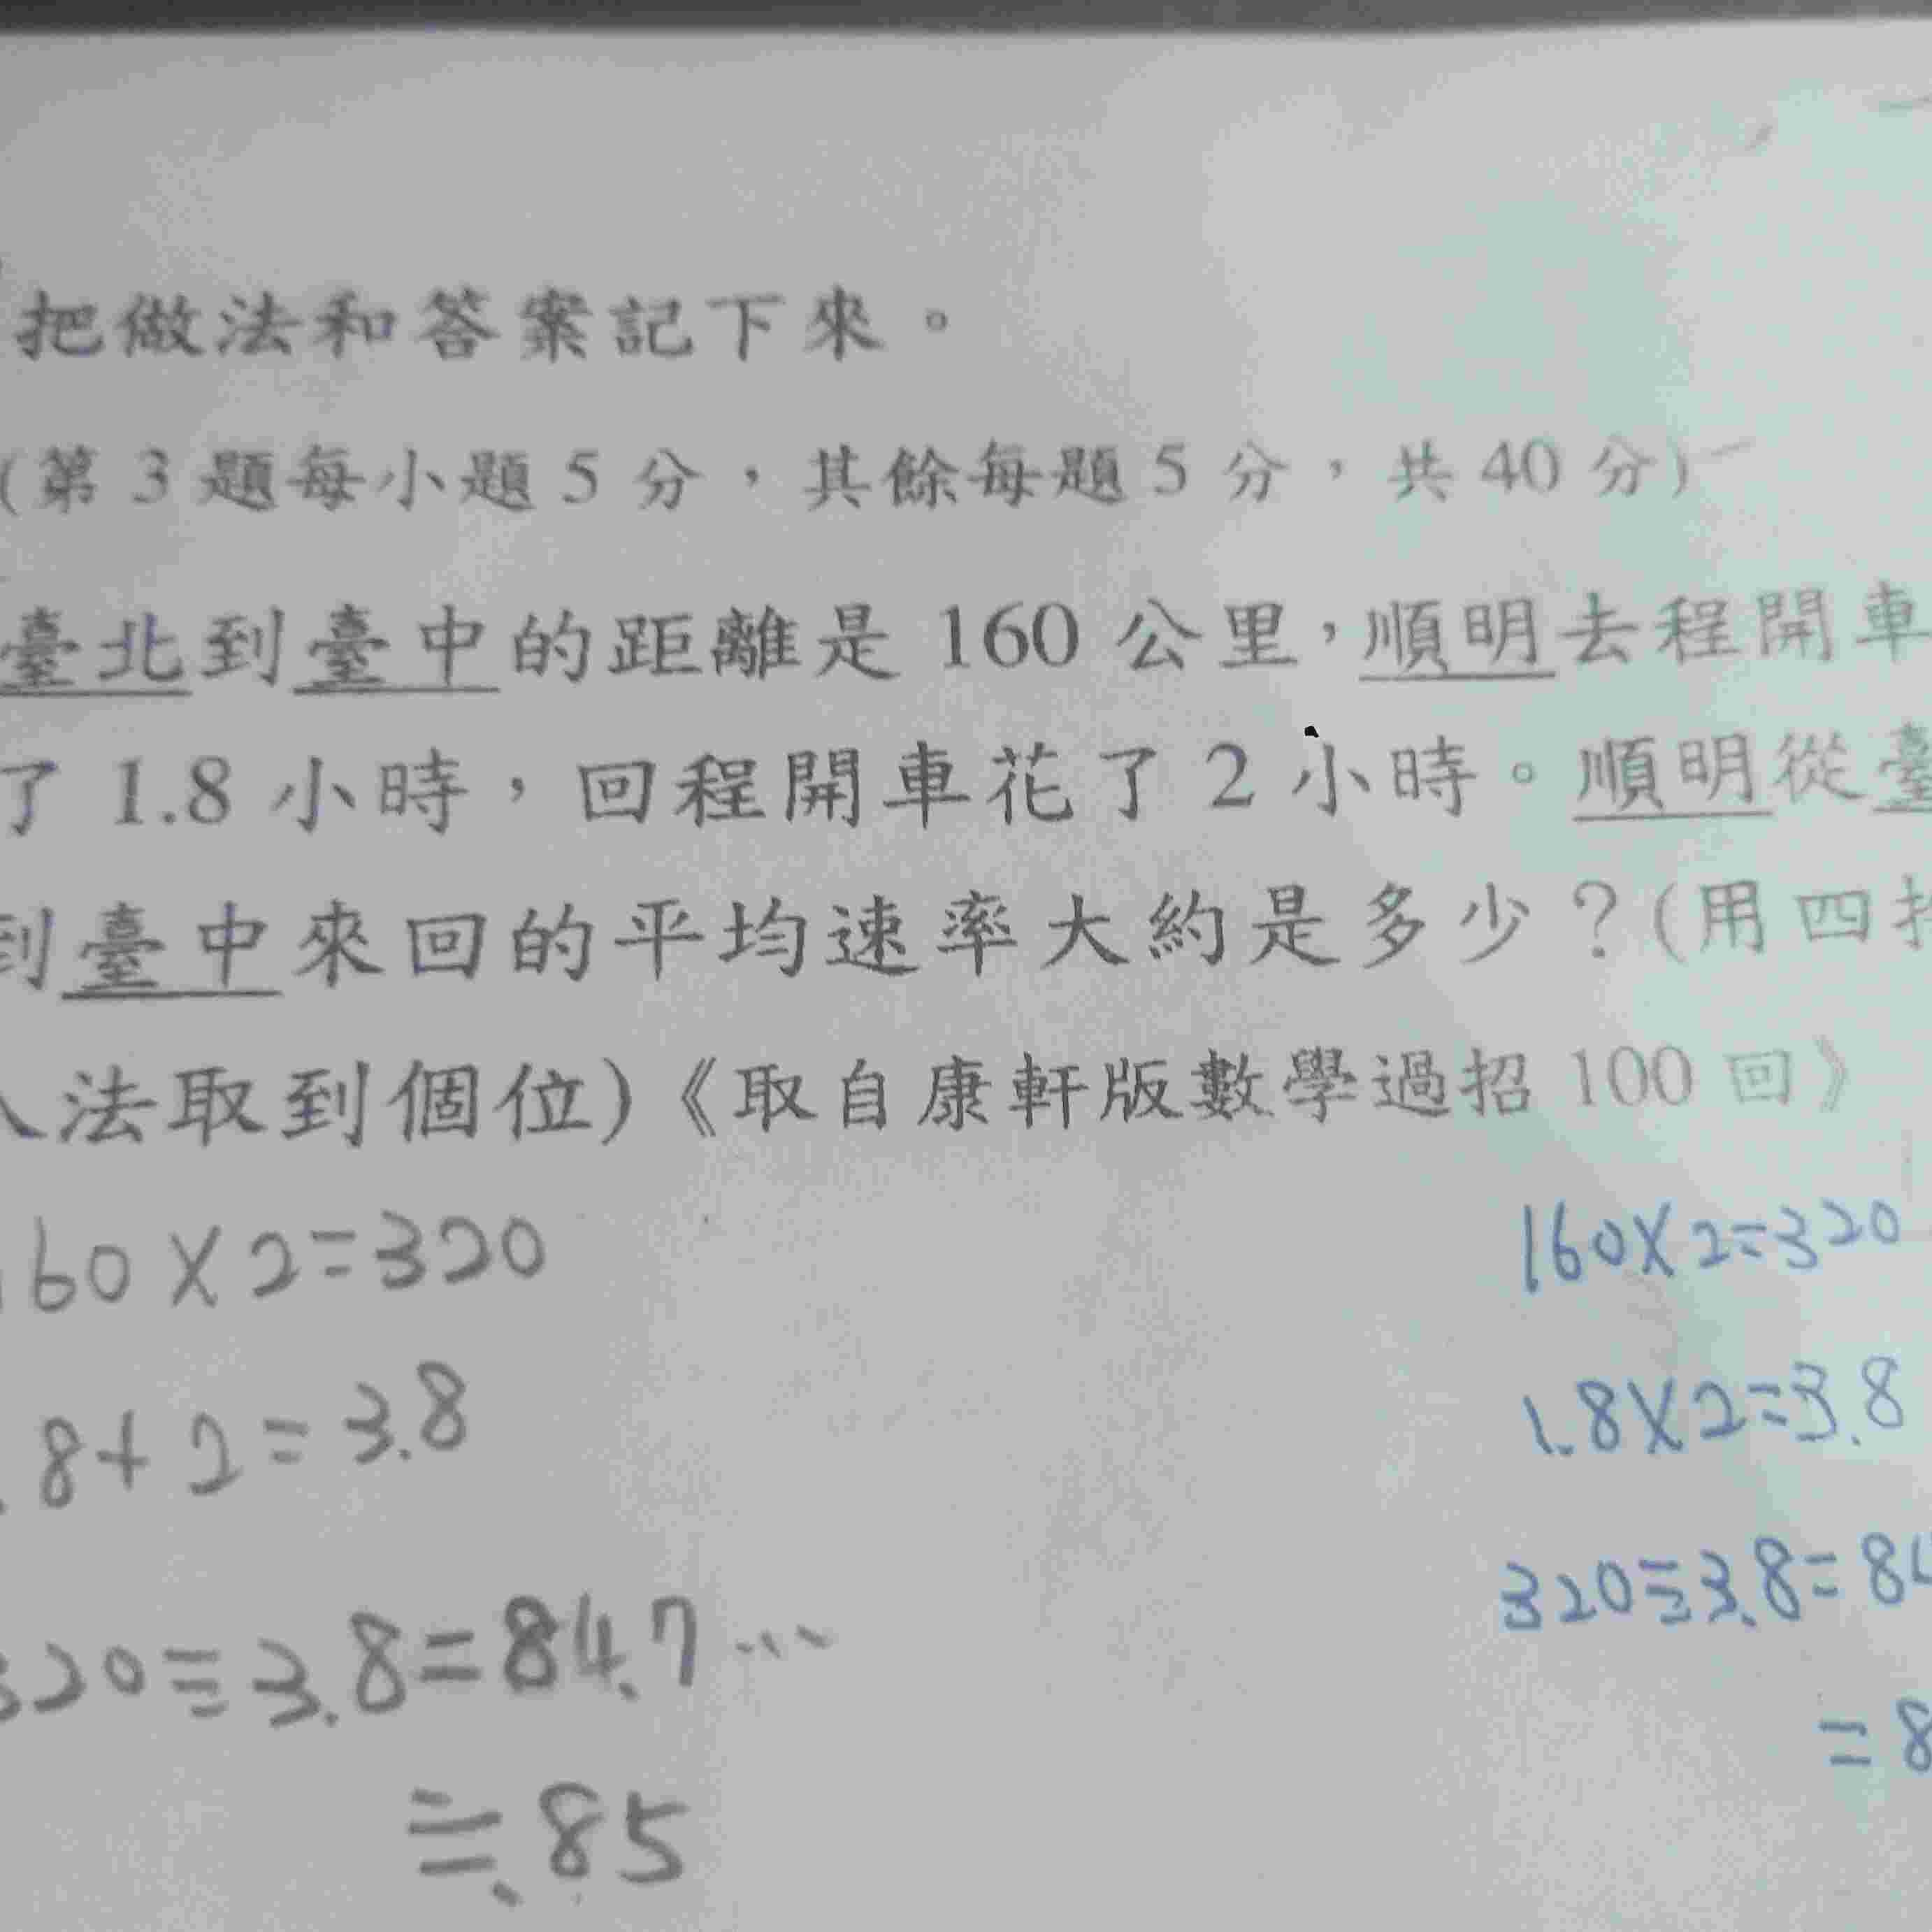 把做法和答案記下來。
(第 3 題每小題 5 分，其餘每題 5 分，共 40 分)
臺北到臺中的距離是 160 公里，順明去程開車
了 1.8 小時，回程開車花了 2 小時。順明從臺
到臺中來回的平均速率大約是多少？(用四捨
入法取到個位)《取自康軒版數學過招 100 回》
160×2=320
.8+2=3.8
320÷3.8=84.7…
≒85
160×2=320
1.8×2=3.8
320÷3.8=84
=8